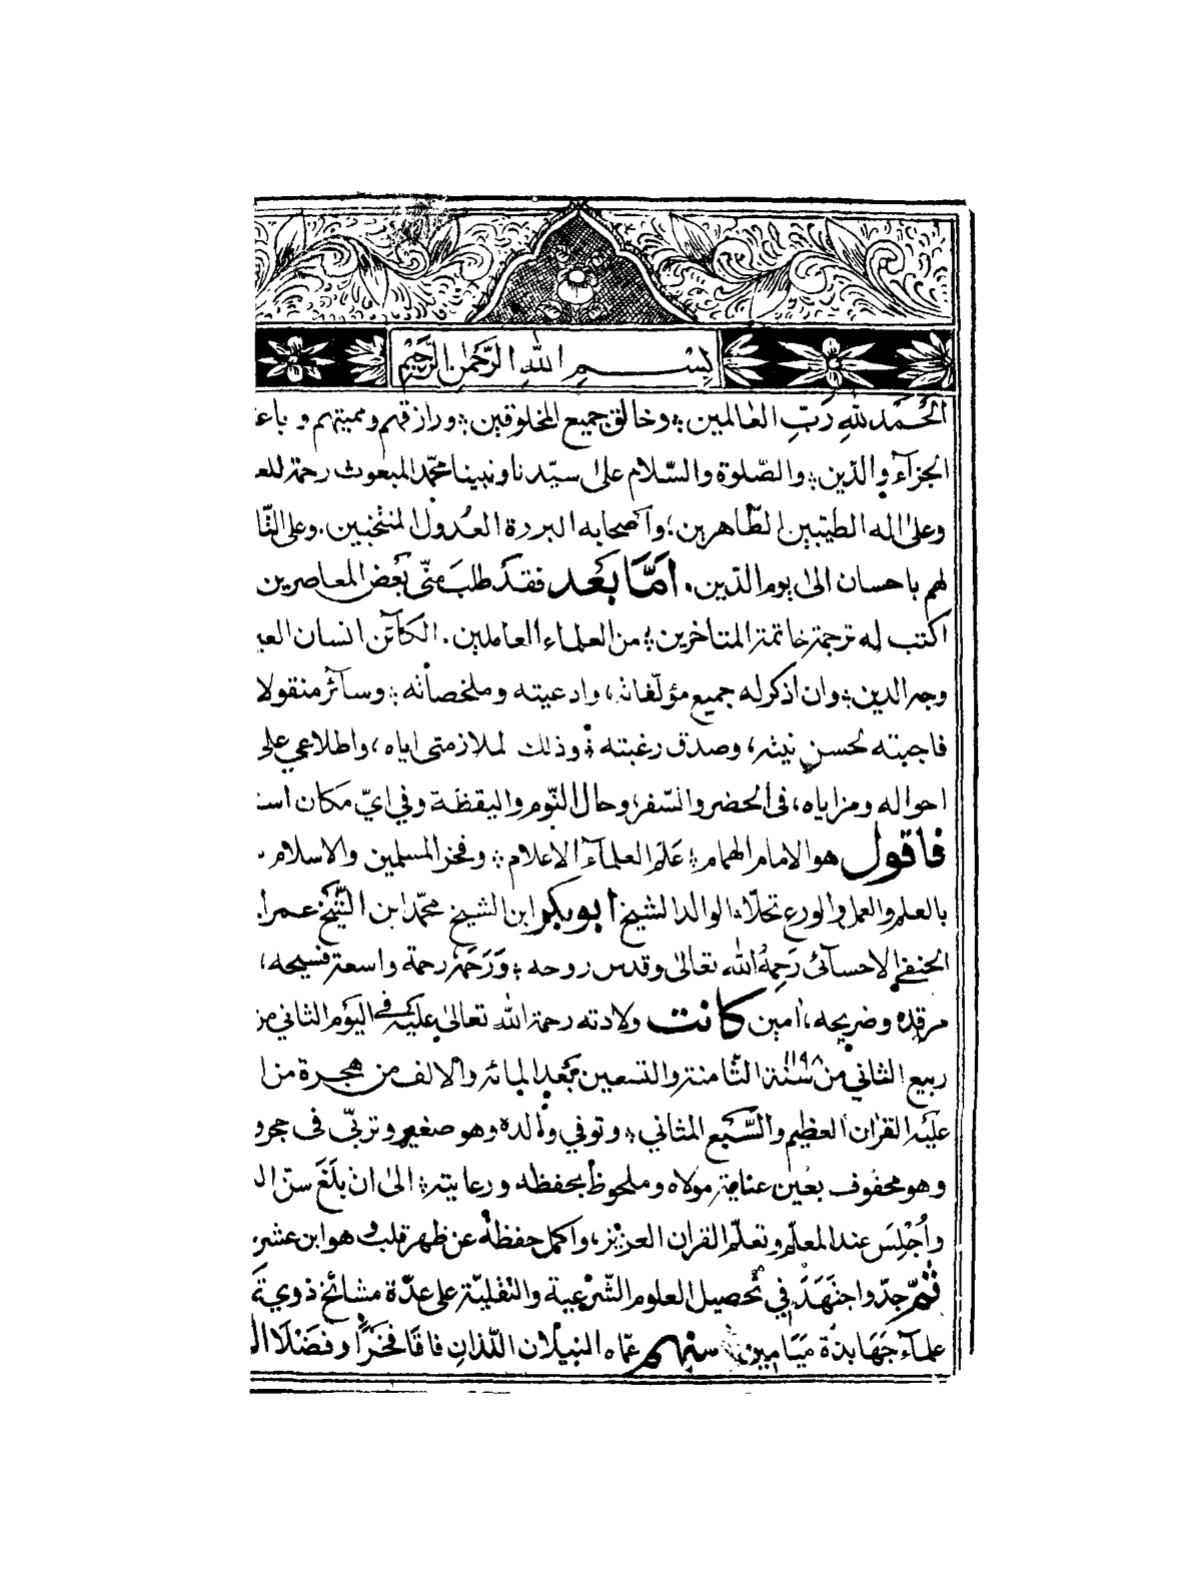 بِسْمِ اللّٰهِ الرَّحْمٰنِ الرَّحِيْمِ
اَلْحَمْدُ لِلّٰهِ رَبِّ العٰالمين ؞ وخالق جميع المخلوقين ؞ ورازقهم ومميتهم و باع
الجزآء والدّين ؞ والصّلوة والسّلام علىٰ سيّدنا ونبينا محمّد المبعوث رحمة للعـ
وعلىٰ اله الطيّبين الطّاهرين ؞ وأصحابه البررة العُدول المنتخبين . وعلى التّا
لهم باحسان الىٰ يوم الدّين . امّا بَعْد فقد طلبَ منّي بَعْض المعاصرين
اكتب له ترجمة خاتمة المتاخرين ؞ من العلماء العاملين . الكآئن انسان العيـ
وجه الدين ؞ وان اذكر له جميع مؤلّفاته ، وادعيته وملخصاته ؞ وسآئر منقولا
فاجبته لحسن نيته ، وصدق رغبته ؞ وذلك لملازمتي اياه ، واطلاعي على
احواله ومزاياه ، في الحضر والسّفر ، وحال النّوم واليقظة وفي ايّ مكان است
فاقول هو الامام الهمام ؞ عَلَم العلمآء الاعلام ؞ وفخر المسلمين والاسلام
بالعلم والعمل والورع تحلّا ، الوالد الشيخ ابوبكر ابن الشيخ محمّد ابن الشّيخ عمر ا
الحنفي الاحسآئى رَحِمهُ اللّٰه تعالىٰ وقدس روحه ؞ وَرَحِمَهُ رحمة واسعة فسيحه ،
مرقده وضريحه ، اٰمين كانت ولادته رحمة اللّٰه تعالىٰ عليه في اليَوم الثاني من
ربيع الثاني من سَنَة ١١٩٨ الثّامنة والتسعين بَعْد المائه والالف من هجرة من ا
عليَه القرٰان العظيم والسَّبع المثاني ؞ وتوفي والده وهو صغير وتربّى في حجر و
وهو محفوف بعَين عناية مولاه وملحوظ بحفظه ورعايته ؞ الىٰ ان بلَغَ سنّ الـ
واُجْلِسَ عند المعلّم وتعلّم القرٰان العزيز ، واكمل حفظهُ عن ظهر قلب وهو ابن عشر
ثمّ جدّ واجتَهَدَ في تحصيل العلوم الشّرعية والنّقليّة على عدّة مشائخ ذوي تَ
علمآء جَهَابذة مَيَامين منهم عمّاه النبيلان اللّذان فاقا فخرًا وفضلا ال